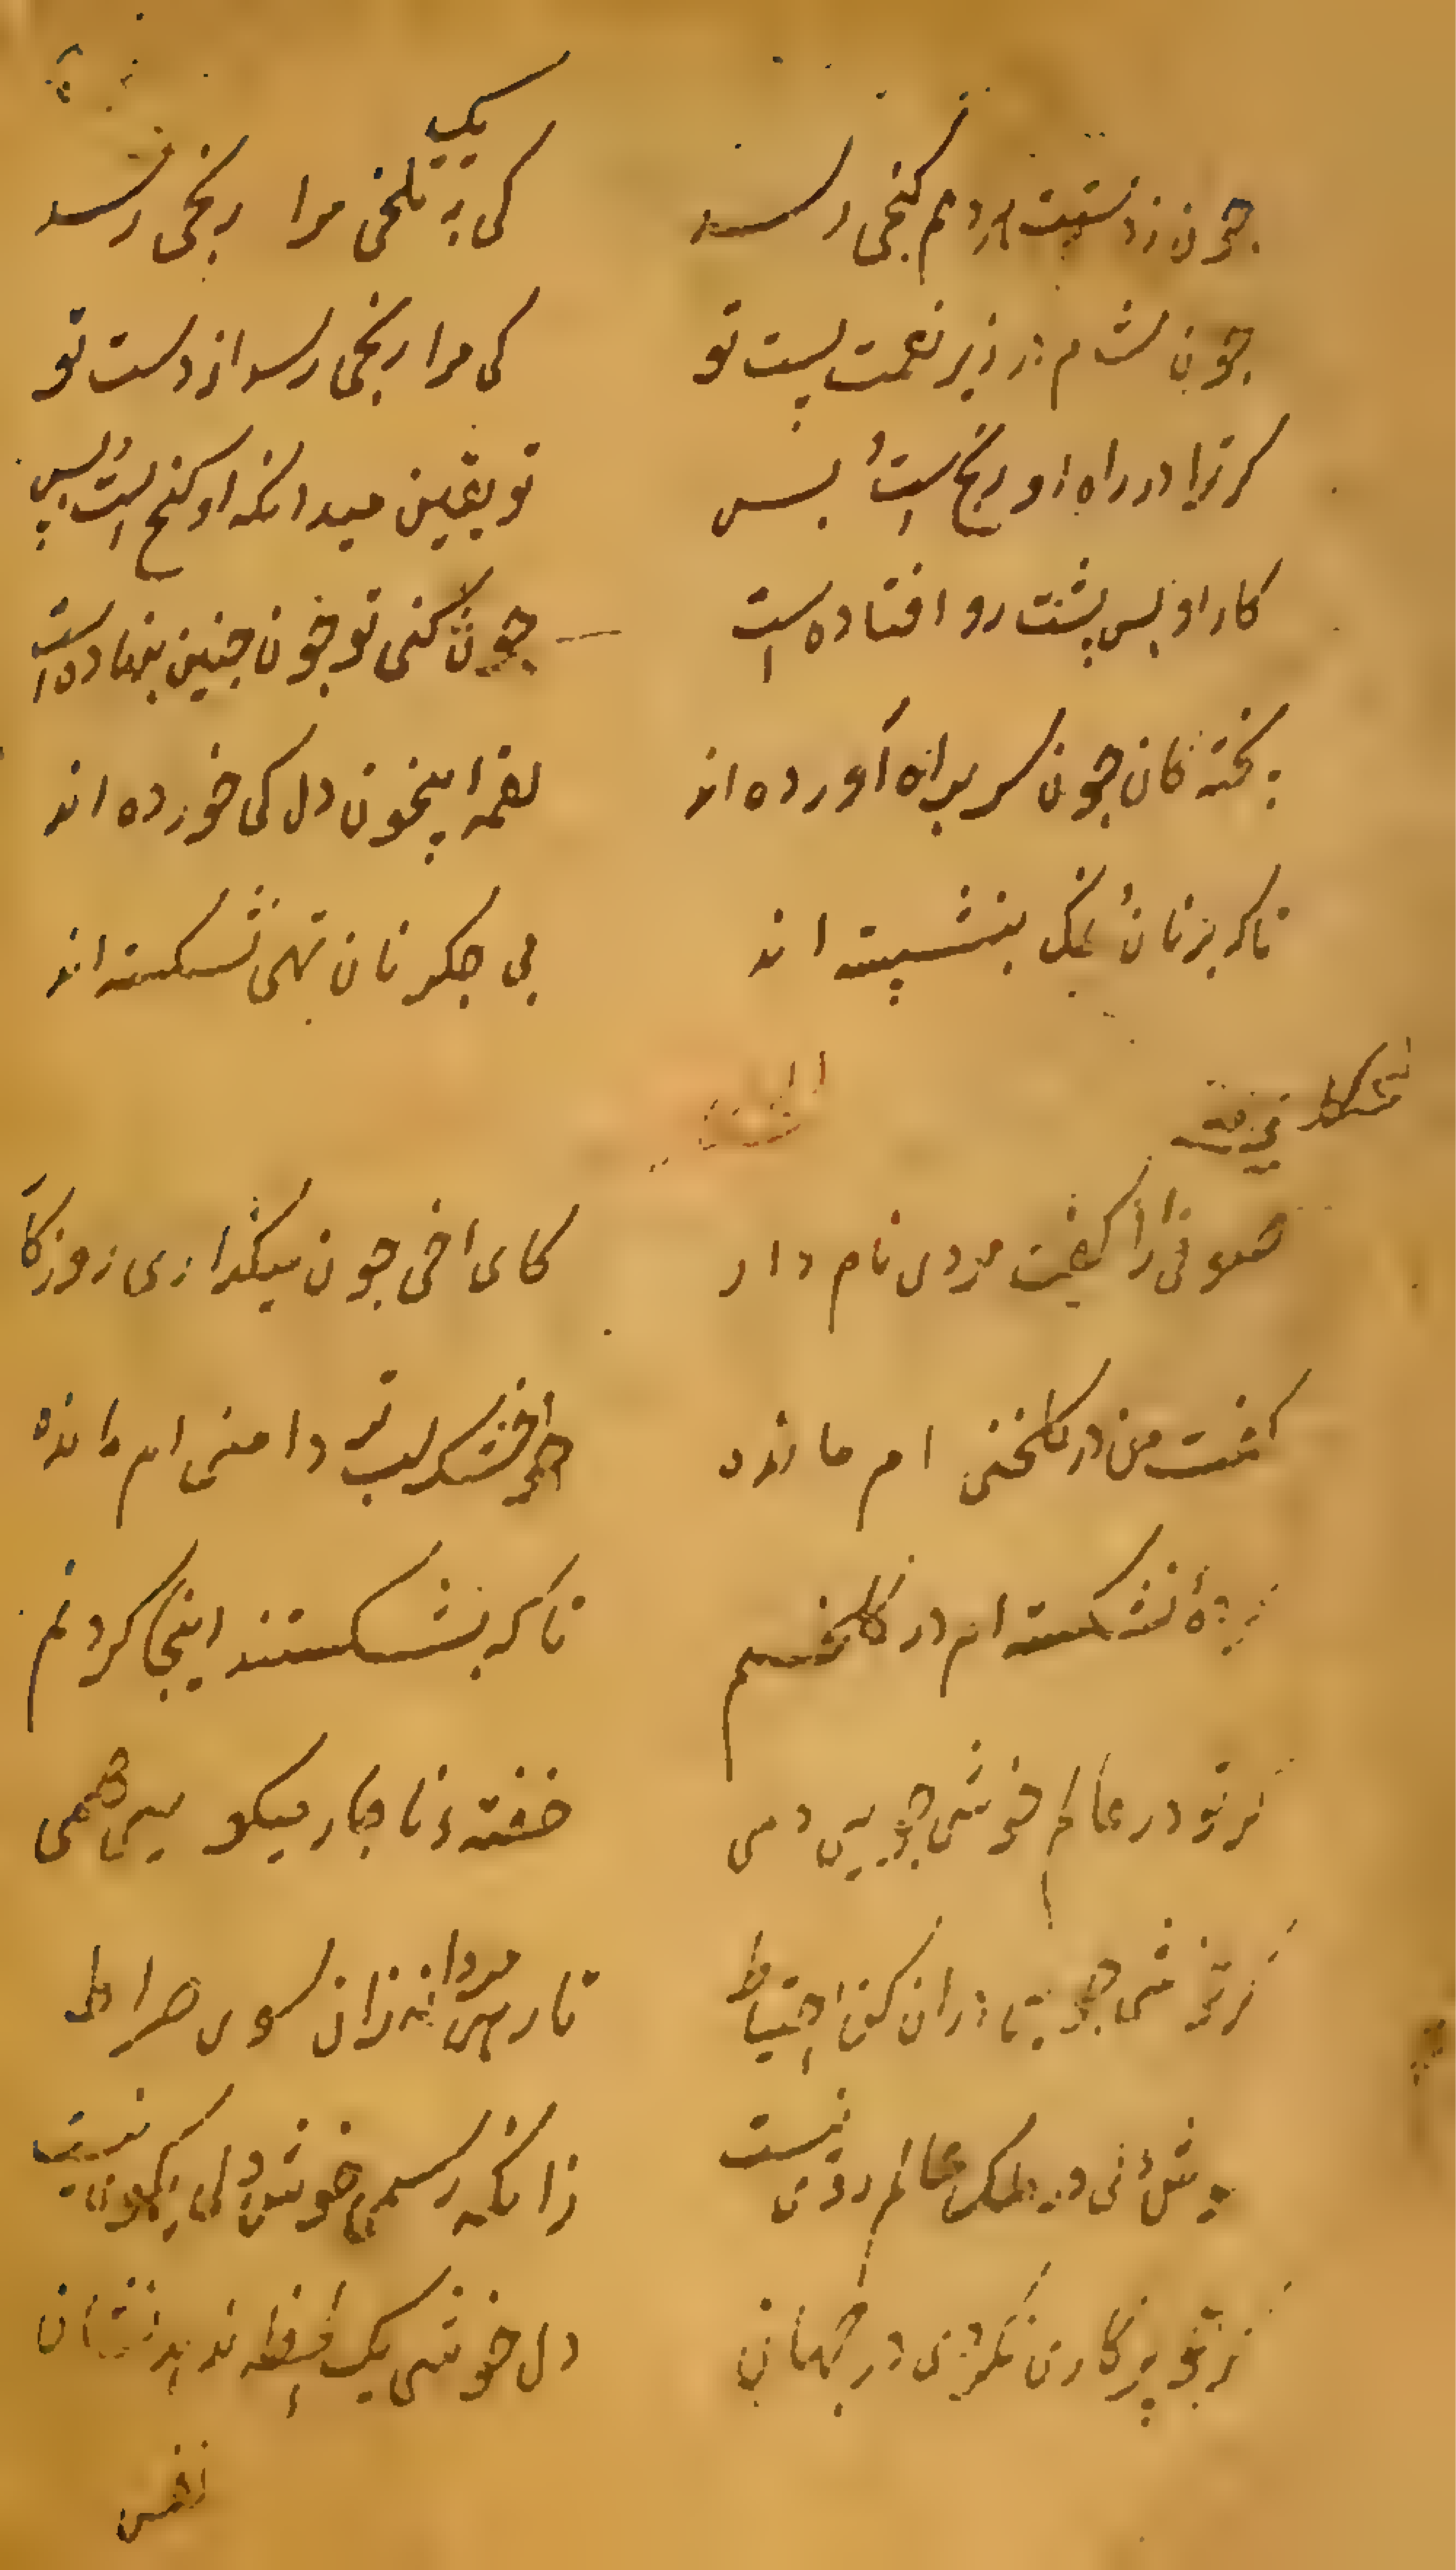 چون ز دستت هر دم گنجی رسد
کی به یک تلخی مرا رنجی رسد
چون شدم در زیر نعمت پست تو
کی مرا رنجی رسد از دست تو
کر ترا در راه او رنج است بس
تو یقین میدانکه او کنج است بس
کار او بس پشت رو افتاده است
چون کنی تو چون چنین بنهاده است
پختکان چون سر براه آورده اند
لقمه ای بیخون دل کی خورده اند
تا که بر نان و نمک بنشسته اند
بی جکر نان تهی نشکسته اند
صوفی را کفت مردی نامدار
کای اخی چون میکذاری روزکار
کفت من در کلخنی ام مانده
خشک لب تر دامنی ام مانده
کرده نشکسته ام در کلخنم
تا که نشکستند اینجا کردنم
کر تو در عالم خوشی جویی دمی
خفته یا میکویی همی
کر خوشی جویی در ان کن احتیاط
تا رسی مردانه زان سوی صراط
خوش دلی در ملک عالم روی نیست
زانکه رسم خوش دلی یکموی نیست
کر تو پرکاری بکردی در جهان
دل خوشی یک نقطه ندهد نشان
نفس